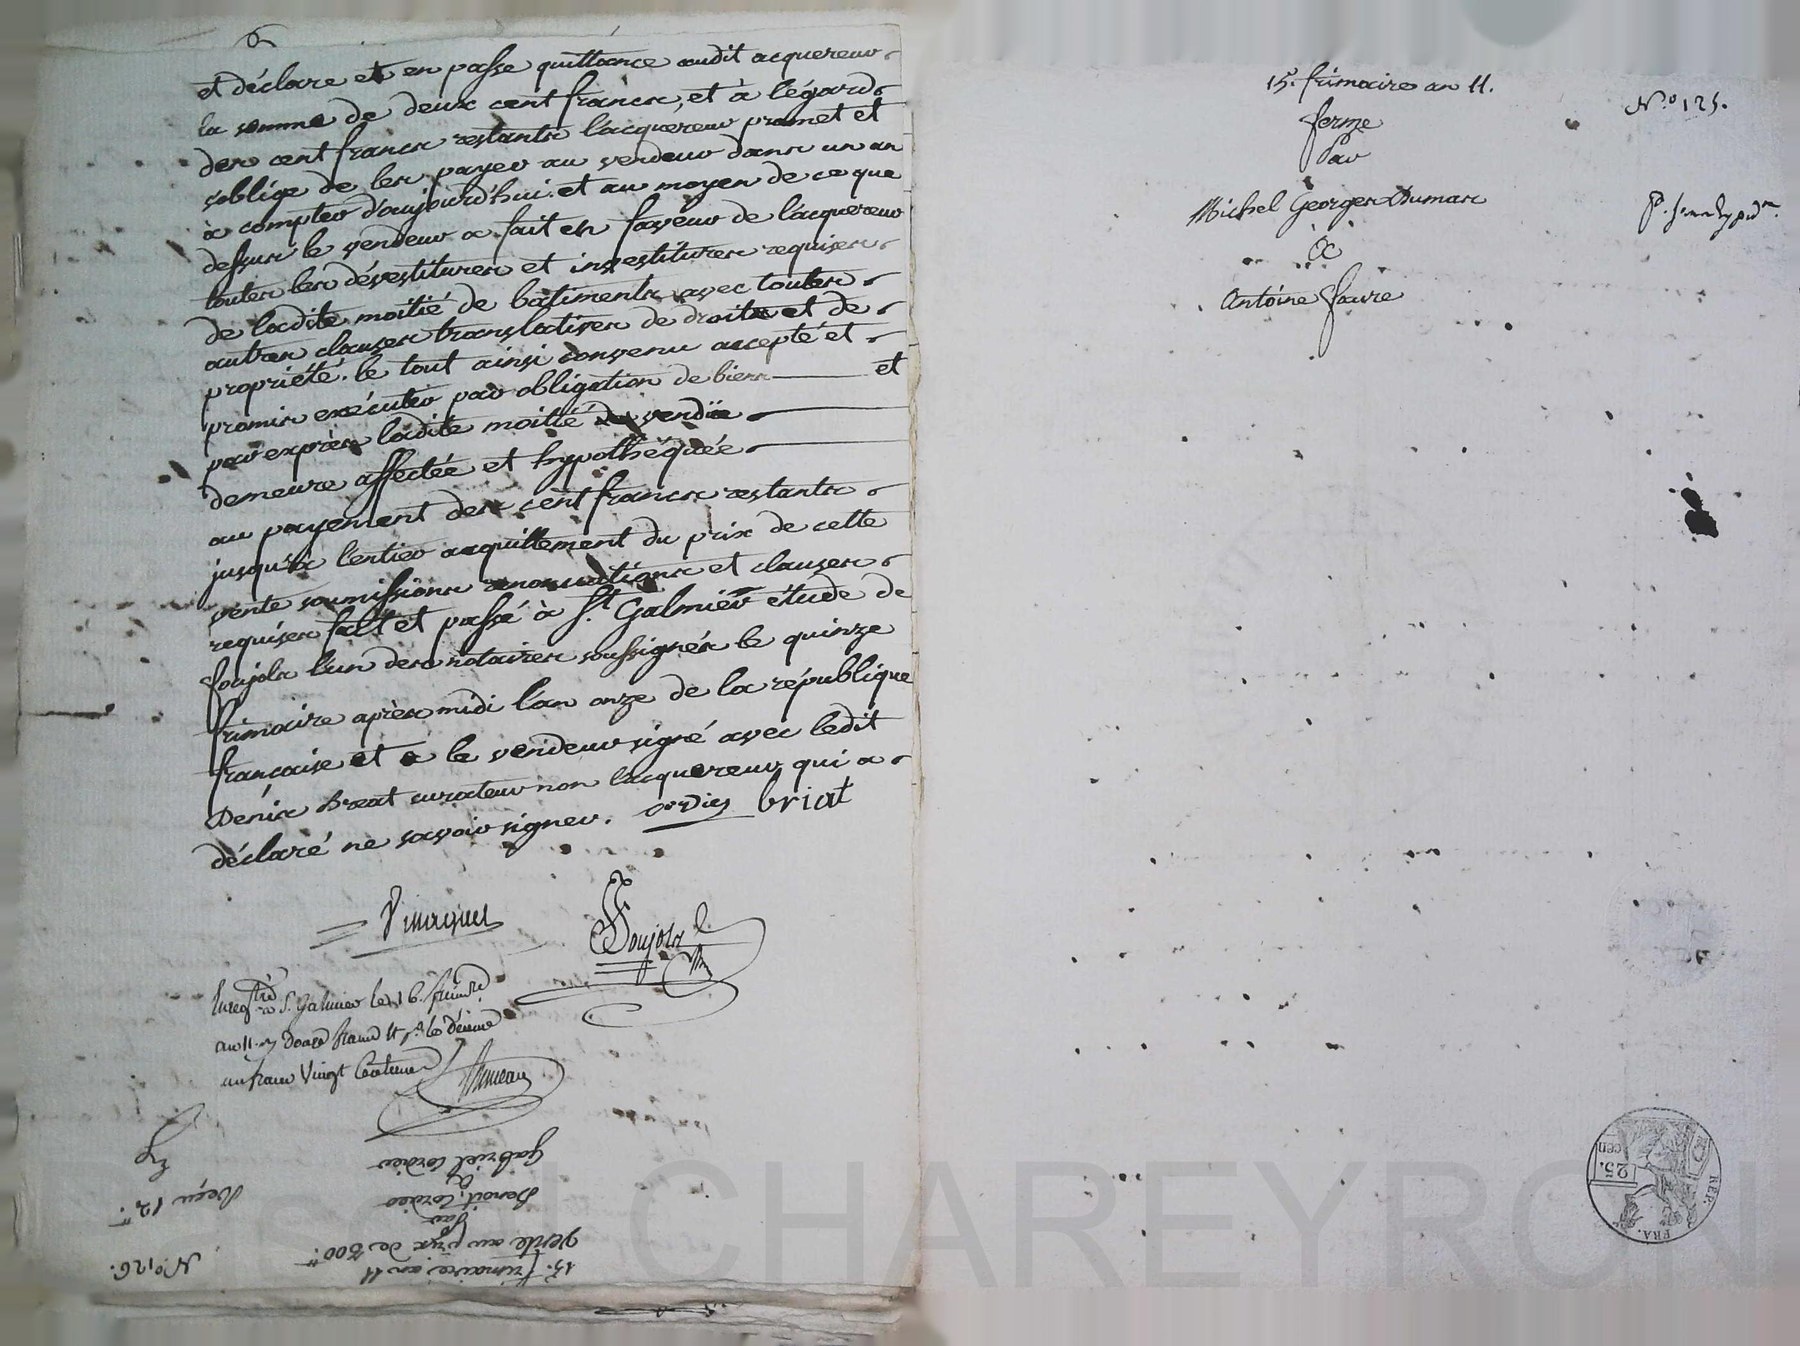 et déclare et en passe quittance audit acquereur
la somme de deux cent francs, et à l'égard
des cent francs restants l'acquéreur promet et
s'oblige de les payer au vendeur dans un an
a compter d'aujourd'hui. et au moyen de ce que
dessus le vendeur a fait en faveur de l'acquereur
toutes les dévestitures et investitures requises
de ladite moitié de bâtiments avec toutes
autres clauses translatives de droits et de
propriété. le tout ainsi convenu accepté et
promis exécuter par obligation de biens et
par exprès ladite moitié vendue
demeure affectée et hypothéquée
au payement des cent francs restants
jusqu'à l'entier acquittement du prix de cette
vente soumissions renonciations et clauses
requises fait et passé à St. Galmier étude de
Soujols l'un des notaires soussignés le quinze
frimaire après midi l'an onze de la république
francaise et a le vendeur signé avec ledit
Denis Breat curateur non l'acquereur qui a
déclaré ne savoir signer. briat
Soujols
Enregtré à St. Galmier le 16. frimre
an 11. douze francs le décime
un franc Vingt Centimes
15. frimaire an 11
Vente au prix de 300
Par
Benoit Cordier
A
Gabriel Cordier
N.o 126.
Reçu 12
15. frimaire an 11.
ferme
Par
Michel Georges Dumas
A
Antoine Faure
N.o 125.
REP. FRA.
25.
cen
CHAREYRON